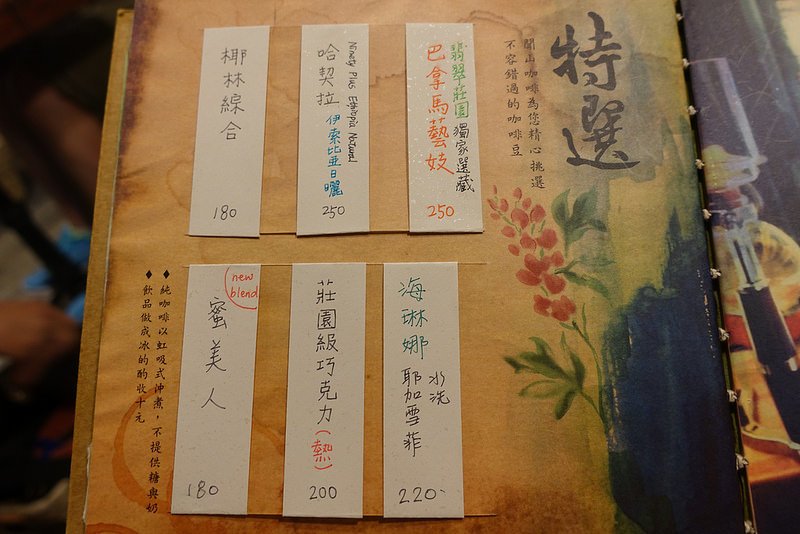 特選
開山咖啡為您精心挑選
不容錯過的咖啡豆
翡翠莊園 獨家選藏
巴拿馬藝妓
250
Ninety Plus Ethiopia Natural
哈契拉 伊索比亞日曬
250
椰林綜合
180
海琳娜 水洗
耶加雪菲
220.
莊園級巧克力(熱)
200
new
blend
蜜美人
180
◆純咖啡以虹吸式沖煮，不提供糖與奶
◆飲品做成冰的酌收十元